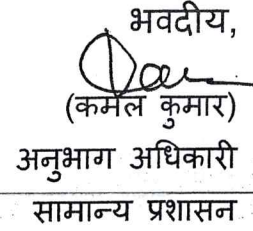 भवदीय,
(कमल कुमार)
अनुभाग अधिकारी
सामान्य प्रशासन